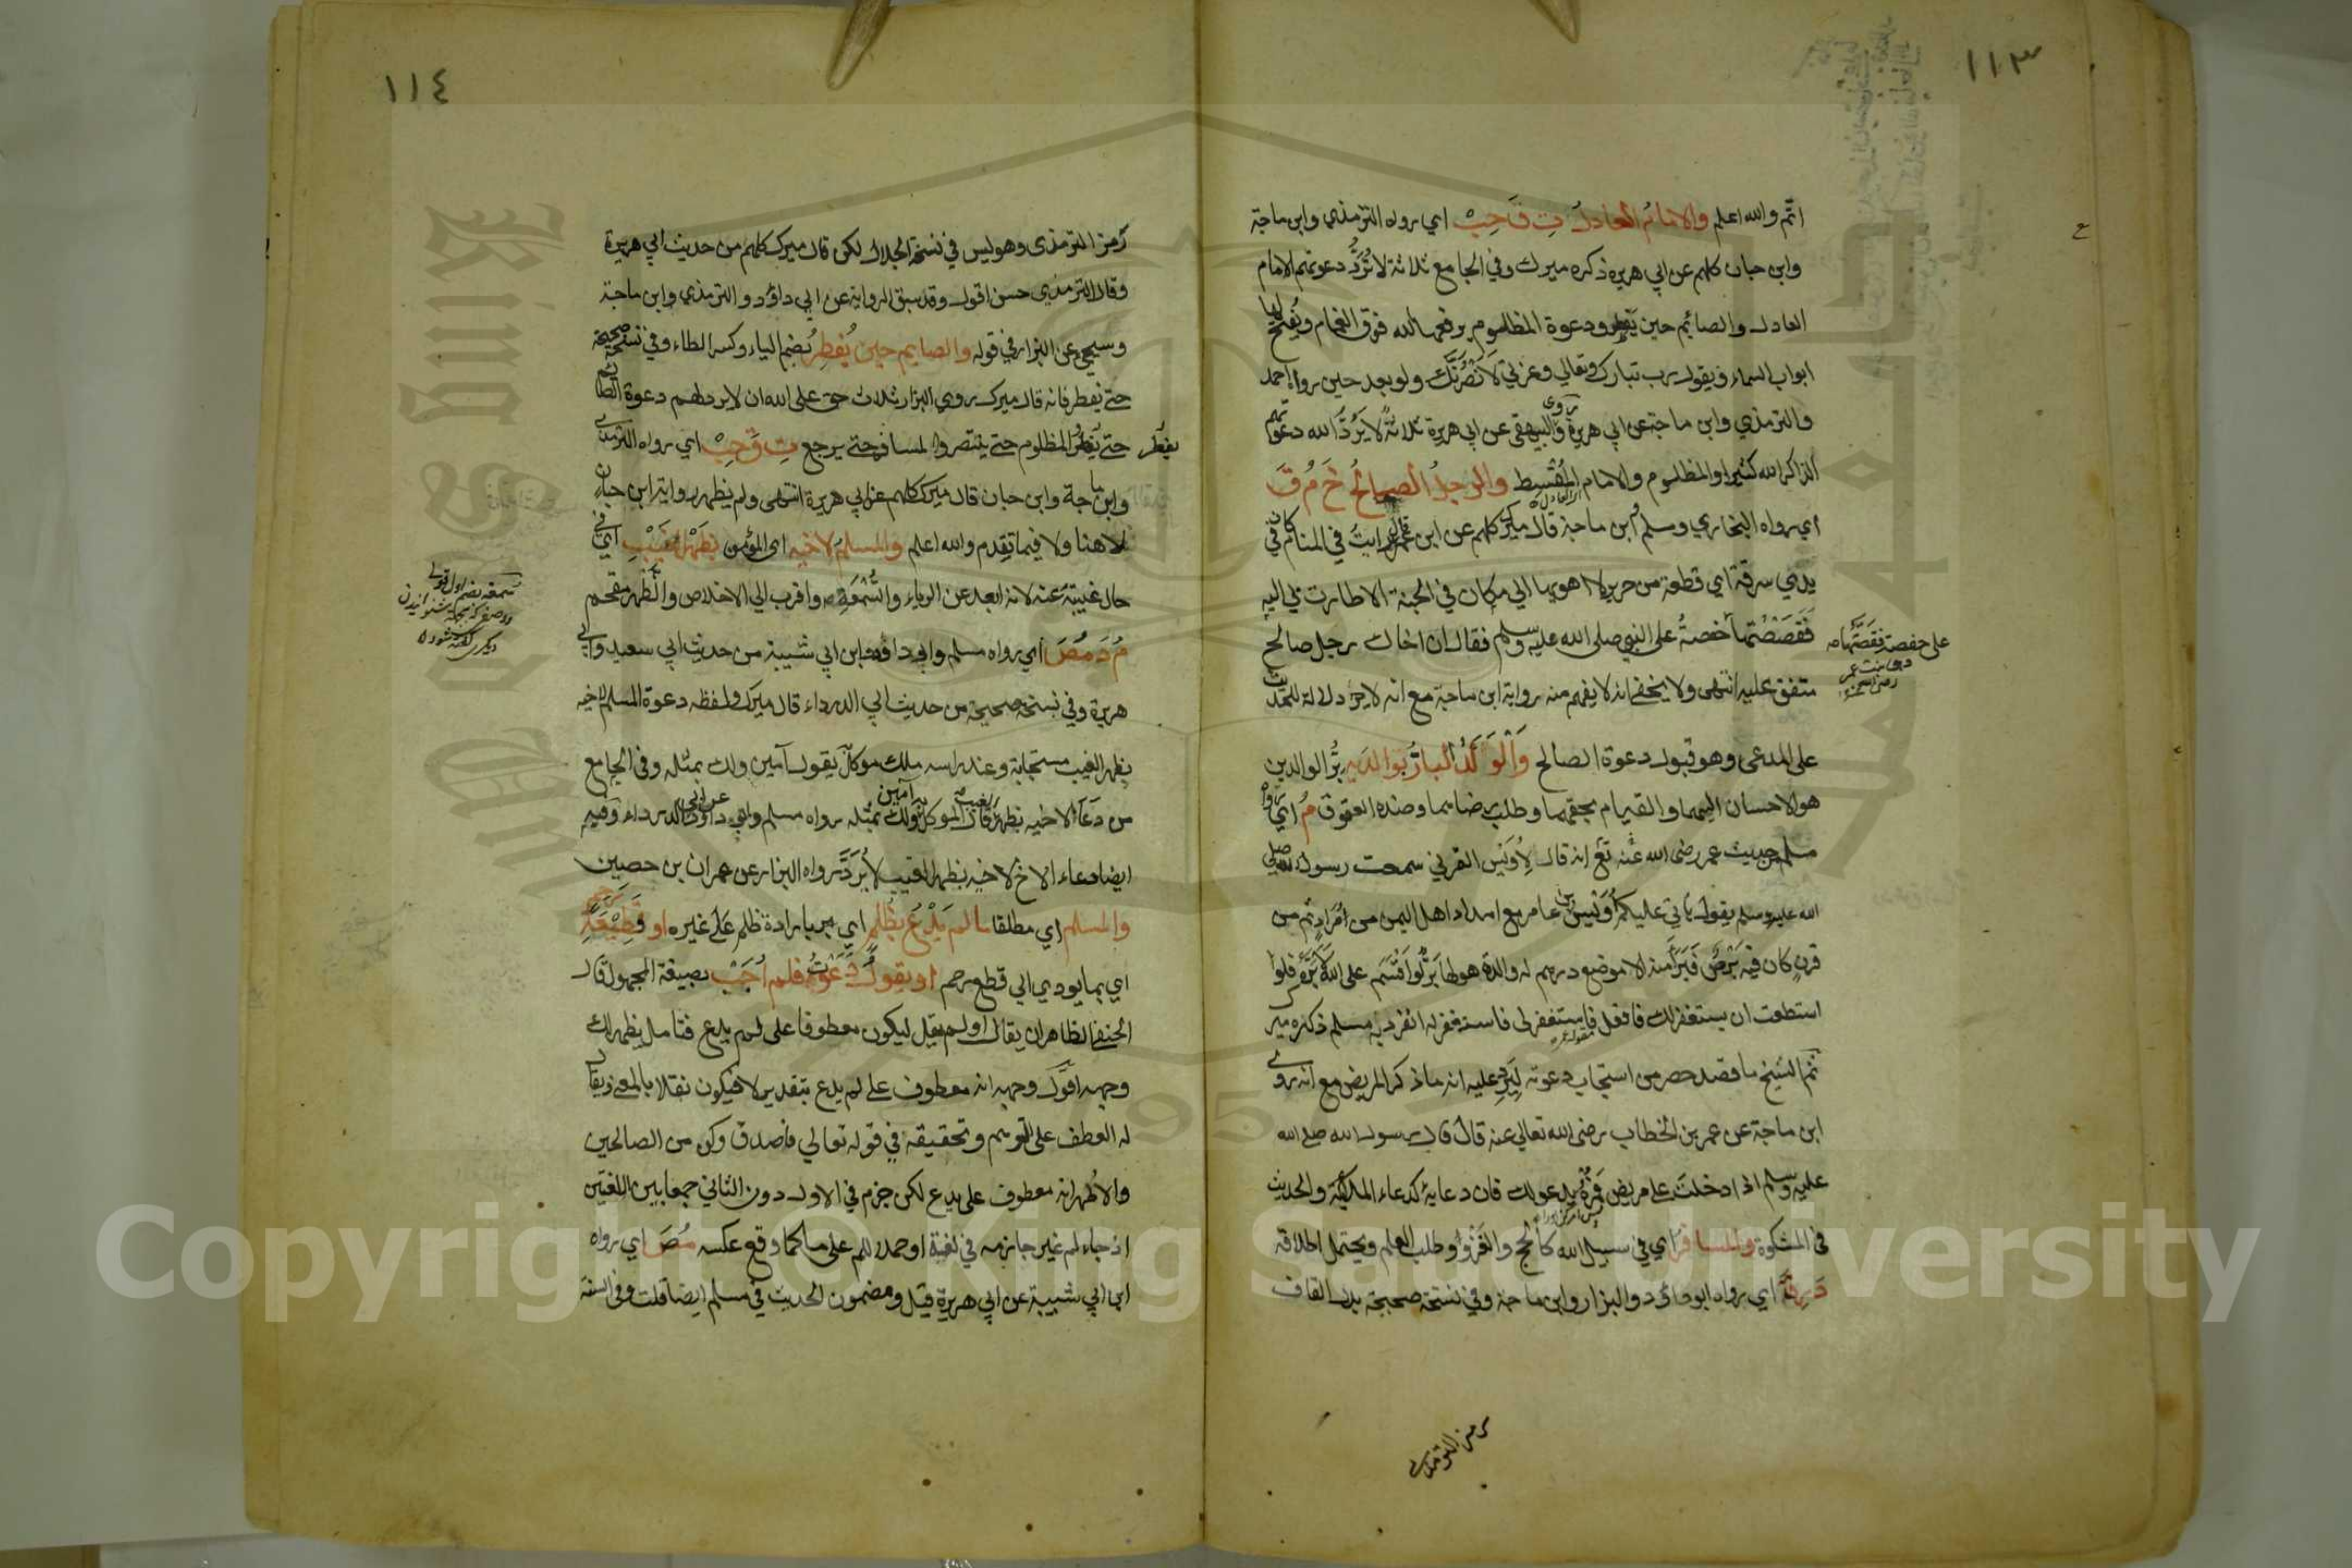 ١١٣
اتم والله اعلم والامام العادل ت ق حب اي رواه الترمذي وابن ماجة
وابن حبان كلهم عن ابي هريرة ذكره ميرك وفي الجامع ثلاثة لا تُرَدُّ دعوتهم الامام
العادل والصائم حين يفطر ودعوة المظلوم يرفعها الله فوق الغمام ويُفتح لها
ابواب السماء ويقول رب تبارك وتعالي وعزتي لَاَنْصُرَنَّكَ ولو بعد حين رواه احمد
والترمذي وابن ماجة عن ابي هريرة وروى البيهقي عن ابي هريرة ثلاثةٌ لا يَرُدُّ الله دعوتهم
الذاكر الله كثيرا والمظلوم والامام المُقْسِط والرجلُ الصالحُ خَ مُ قَ
اي رواه البخاري ومسلم ابن ماجة قال ميرك كلهم عن ابن عمر رايت في المنام كان في
يدي سرقة اي قطعة من حرير لا اهوي بها الي مكان في الجنة الا طارت بي اليه
فَقَصَصْتُها حفصةُ على النبي صلى الله عليه وسلم فقال ان اخاك رجل صالح
على حفصة فقصَّتْها
متفق عليه انتهى ولا يخفى انه لا يفهم منه رواية ابن ماجة مع انه لا دلالة للحديث
على المدعى وهو قبول دعوة الصالح وَالْوَلَدُ البارُّ بوالدَيهِ برُّ الوالدين
هو الاحسان اليهما والقيام بحقهما وطلب رضائهما وضده العقوق مُ اي رواه
مسلم من حديث عمر رضى الله عنه تع انه قال لِأُوَيْس القرني سمعت رسول الله صلى
الله عليه وسلم يقول ياتي عليكم أُوَيْس بن عامر مع امداد اهل اليمن من مُرَاد ثم من
قرنٍ كان فيه بَرَصٌ فَبَرَأَ منه الا موضع درهم له والدة هو لها بَرٌّ لو اَقْسَم على الله لاَبَرَّه فلو
استطعت ان يستغفر لك فافعل فاستغفر لي فاستغفر له انفرد به مسلم ذكره مير
ثم الشيخ ما قصد حصر من استجاب دعوته ليَرِد عليه انه ما ذكر المريض مع انه روى
ابن ماجة عن عمر بن الخطاب رضى الله تعالي عنه قال قال رسول الله صلى الله
عليه وسلم اذا دخلتَ على مريض فمُرْهُ يدعو لك فان دعاءه كدعاء الملائكة والحديث
في المشكوة والمسافر اي في سبيل الله كالحج والغَزْو وطلب العلم ويحتمل اطلاقه
دَ رِ قَ اي رواه ابو داؤد والبزار وابن ماجة وفي نسخة صحيحة بدل القاف
رمز الترمذي
١١٤
رَمز الترمذى وهو ليس في نسخة الجلال لكن قال ميرك كلهم من حديث ابي هريرة
وقال الترمذي حسن اقول وقد سبق الرواية عن ابي داؤد والترمذي وابن ماجة
وسيجئ عن البزار في قوله والصايم حين يُفطِر بضم الياء وكسر الطاء وفي نسخة صحيحة
حتى يفطر فانه قال ميرك روى البزار ثلاث حق على الله ان لا يرد لهم دعوة الصائم
حتى يفطر المظلوم حتى ينتصر والمسافر حتى يرجع تِ قَ حِبْ اي رواه الترمذي
يفطر
وابن ماجة وابن حبان قال ميرك كلهم عن ابي هريرة انتهى ولم يظهر رواية ابن حبان
لا هنا ولا فيما تقدم والله اعلم والمسلمُ لاخيه اى المؤمن بظَهْر الغيب اي في
حال غيبته عنه لانه ابعد عن الرياء والسُّمْعَةِ واقرب الي الاخلاص والظهر مقحم
سمعة بضم اول
مُ دَ مُصَ اي رواه مسلم وابو داؤد وابن ابي شيبة من حديث ابي سعيد وابي
هريرة وفي نسخة صحيحة من حديث ابي الدرداء قال ميرك ولفظه دعوة المسلم لاخيه
بظهر الغيب مستجابة وعند راسه ملك موكلٌ يقول آمين ولك بمثله وفي الجامع
من دَعَا لاخيه بظهر الغيب قال الموكل به آمين ولك بمثله رواه مسلم وابو داؤد عن ابي الدرداء وفيه
ايضا دعاء الاخ لاخيه بظهر الغيب لا يُرَدُّ رواه البزار عن عمران بن حصين
والمسلم اي مطلقا ما لم يَدْعُ بظُلم اي بارادة ظلم عَلَى غيره او قَطِيْعَةِ رحم
اي بما يودي الي قطع رحم او يقول دَعَوْتُ فلم اُجَبْ بصيغة المجهول قال
الحنفي الظاهر ان يقال او لم يقل ليكون معطوفا على لم يدع فتامل يظهر لك
وجهه اقول وجهه انه معطوف على لم يدع بتقدير لا فيكون نقلا بالمعنى ويقال
له العطف على التوهم وتحقيقه في قوله تعالي فاصدق وكن من الصالحين
والاظهر انه معطوف على يدع لكن جزم في الاول دون الثاني جمعا بين اللغتين
اذ جاء لم غير جازمه في لغة او حملا لم على ما كما وقع عكسه مُصَ اي رواه
ابن ابي شيبة عن ابي هريرة قيل ومضمون الحديث في مسلم ايضا قلت وفى السنة
Copyright © King Saud University
King Saud University
1957